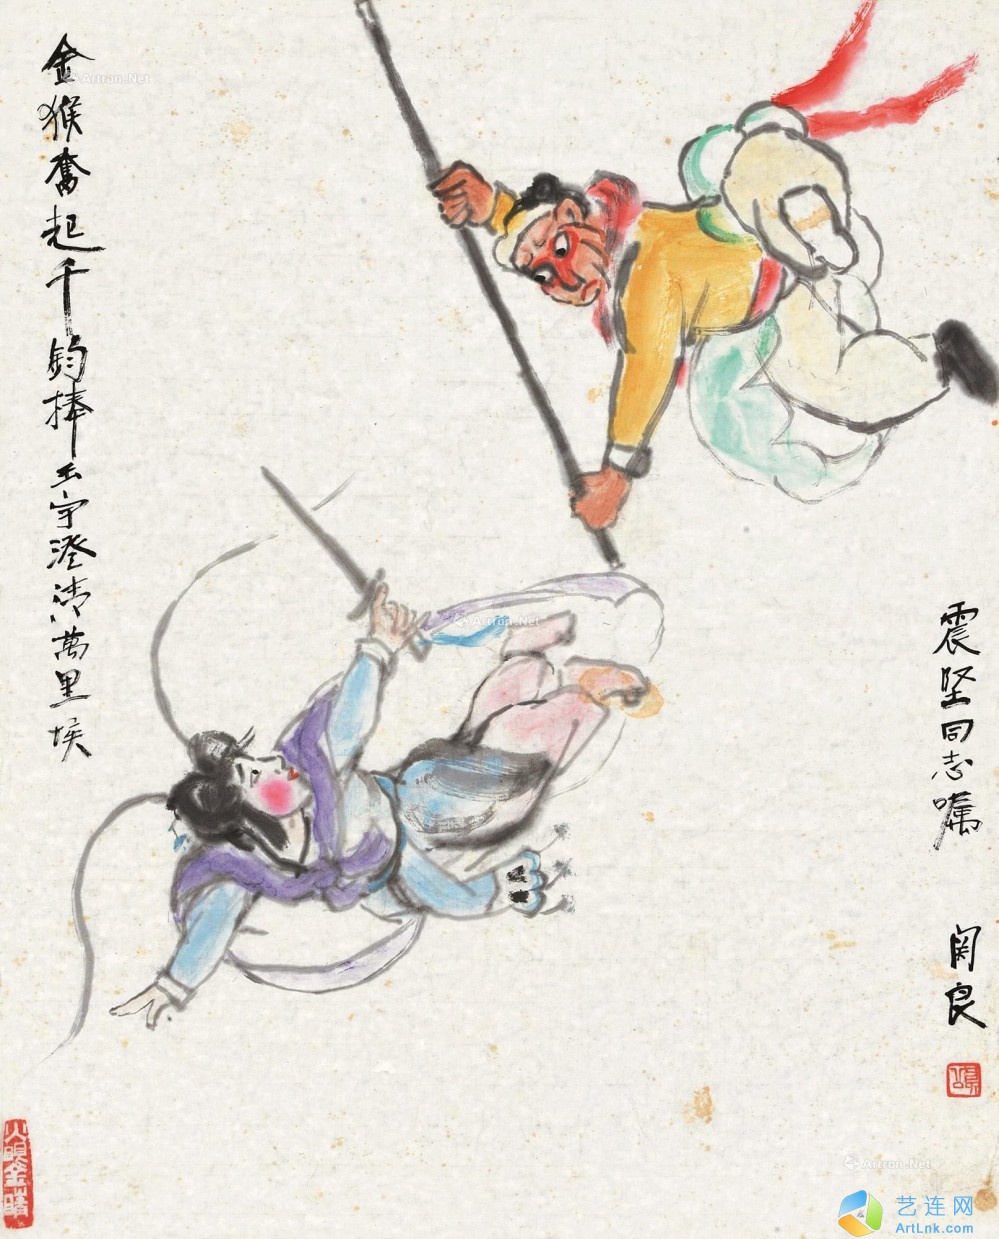 金猴奮起千鈞棒玉宇澄清萬里埃
震坚同志嘱
関良
火眼金睛
Artron.Net
Artron.Net
Artron.Net
艺连网
ArtLnk.com